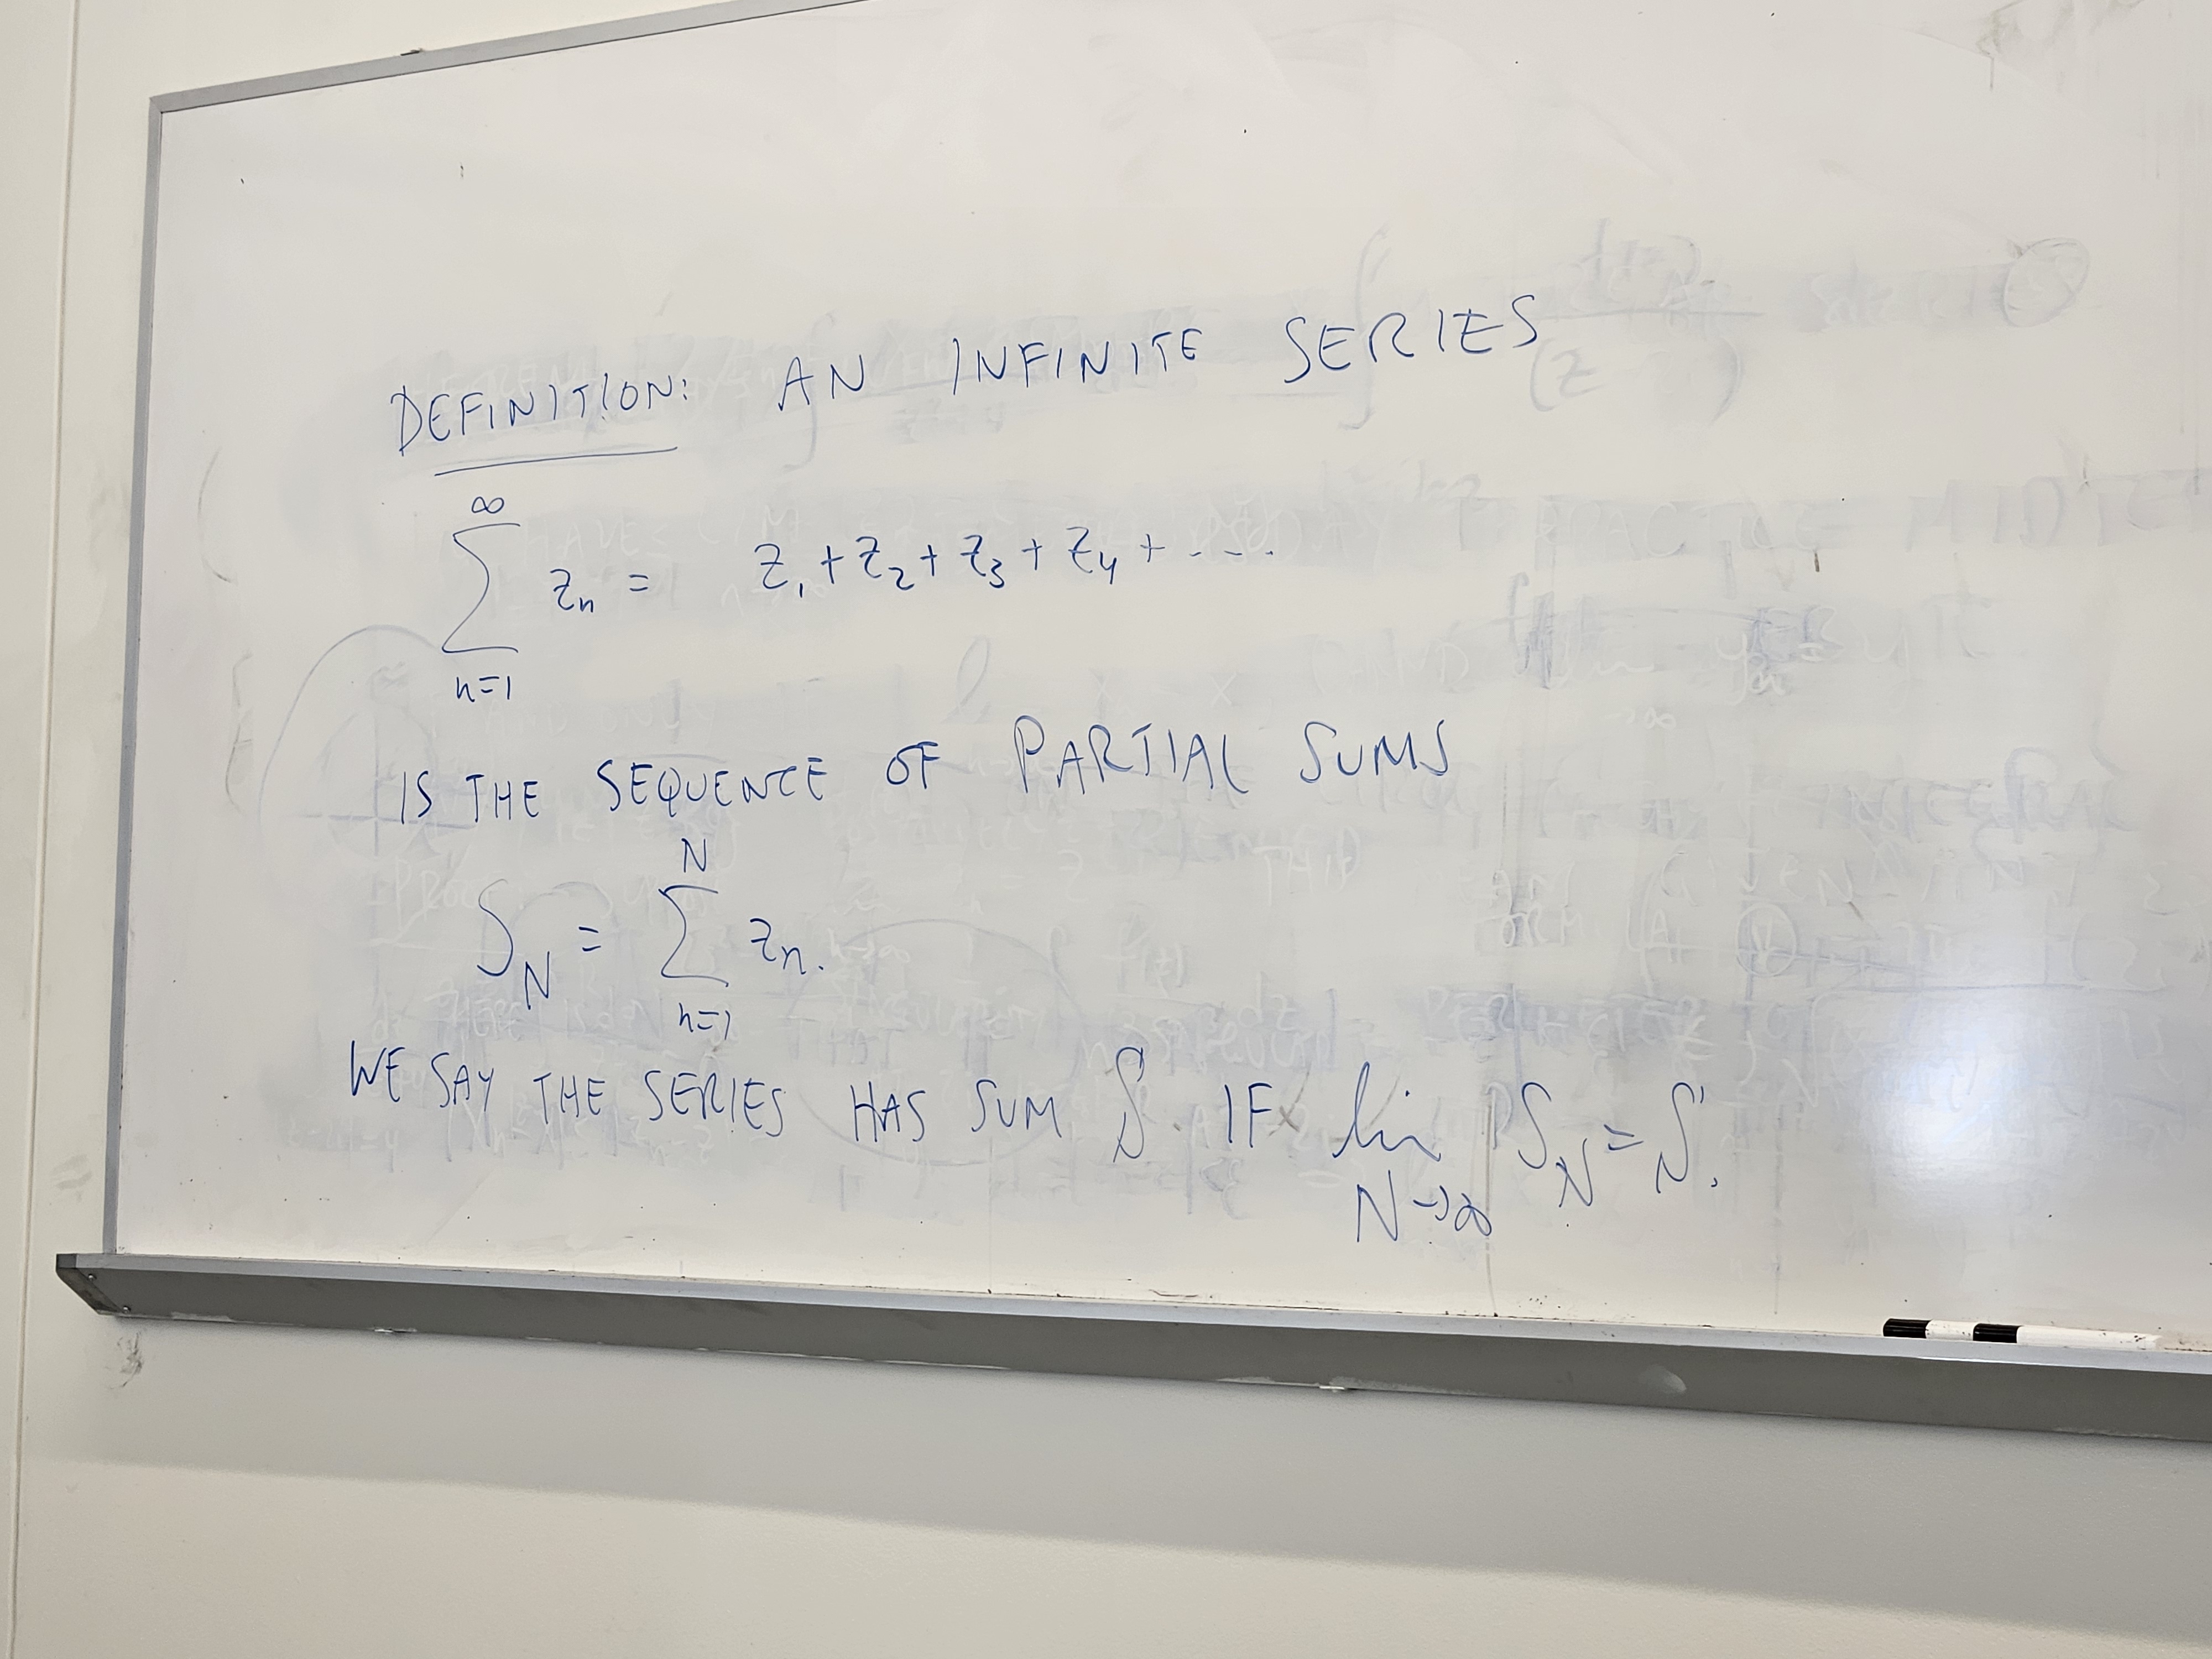 DEFINITION: AN INFINITE SERIES
∞
∑ zₙ = z₁ + z₂ + z₃ + z₄ + ....
n=1
IS THE SEQUENCE OF PARTIAL SUMS
N
S_N = ∑ zₙ.
n=1
WE SAY THE SERIES HAS SUM S IF lim S_N = S.
N→∞